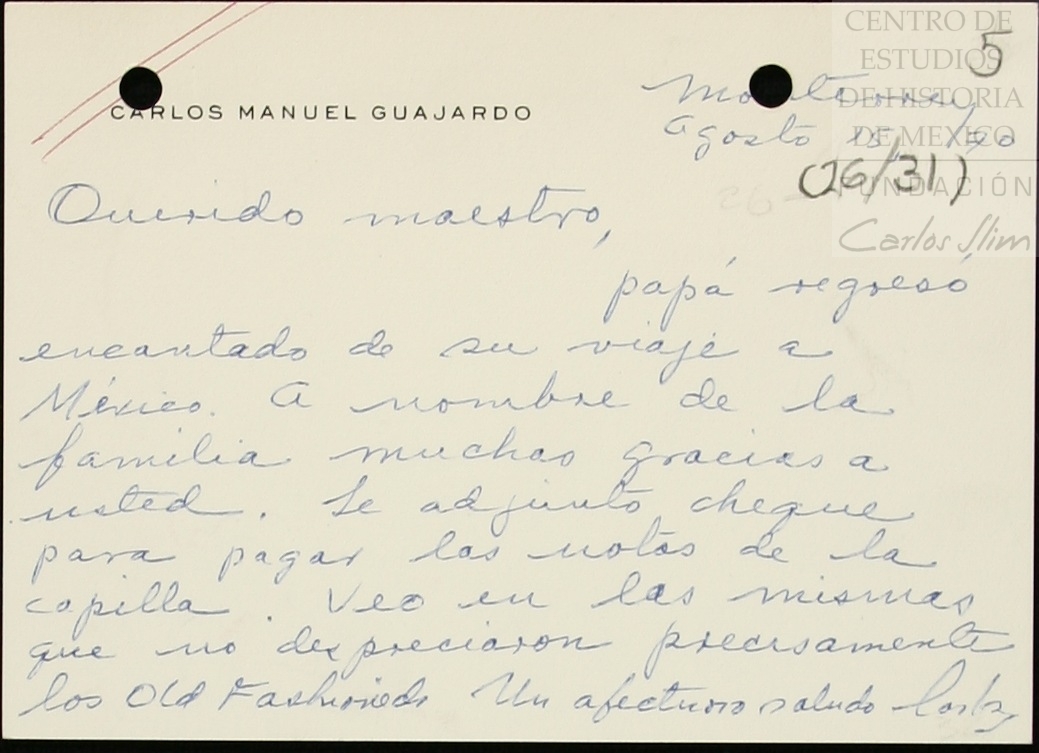 CENTRO DE
ESTUDIOS
DE HISTORIA
DE MEXICO
FUNDACIÓN
Carlos Slim
5
CARLOS MANUEL GUAJARDO
Monterrey
Agosto 15, /70
(26/31)
Querido maestro,
papá regresó
encantado de su viaje a
México. A nombre de la
familia muchas gracias a
usted. Le adjunto cheque
para pagar las notas de la
capilla. Veo en las mismas
que no despreciaron precisamente
los Old Fashioneds Un afectuoso saludo